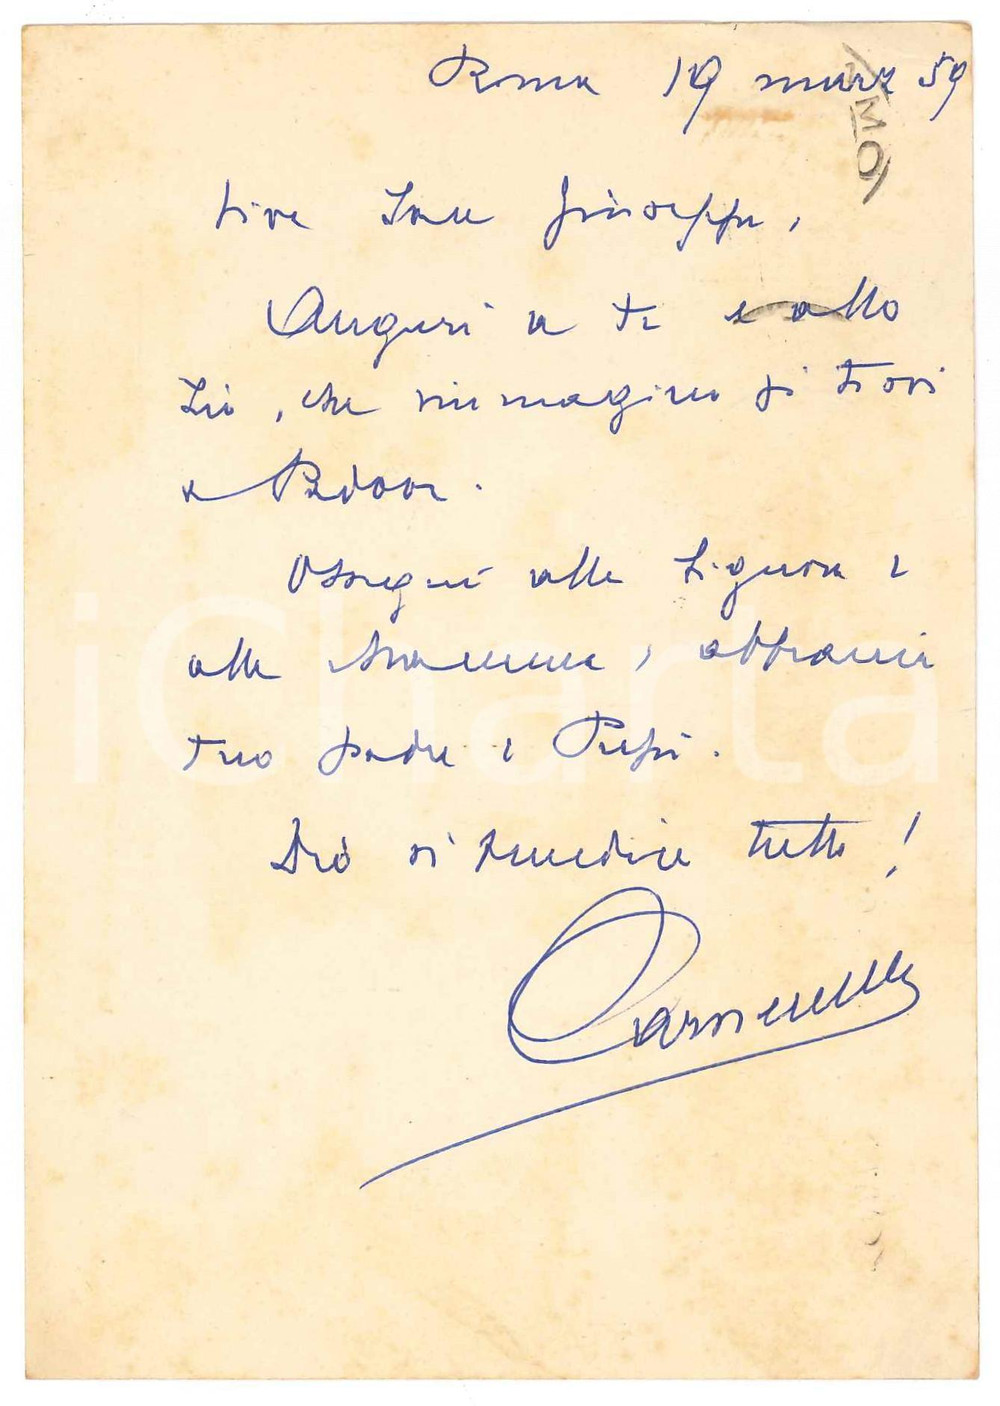 Roma 19 marz 59
Viva San Giuseppe,
Auguri a te e allo
Zio, che immagino si trovi
a Padova.
Ossequi alla Signora e
alla mamma, abbracci
tuo padre e Pupi.
Dio vi benedica tutti!
iCharta